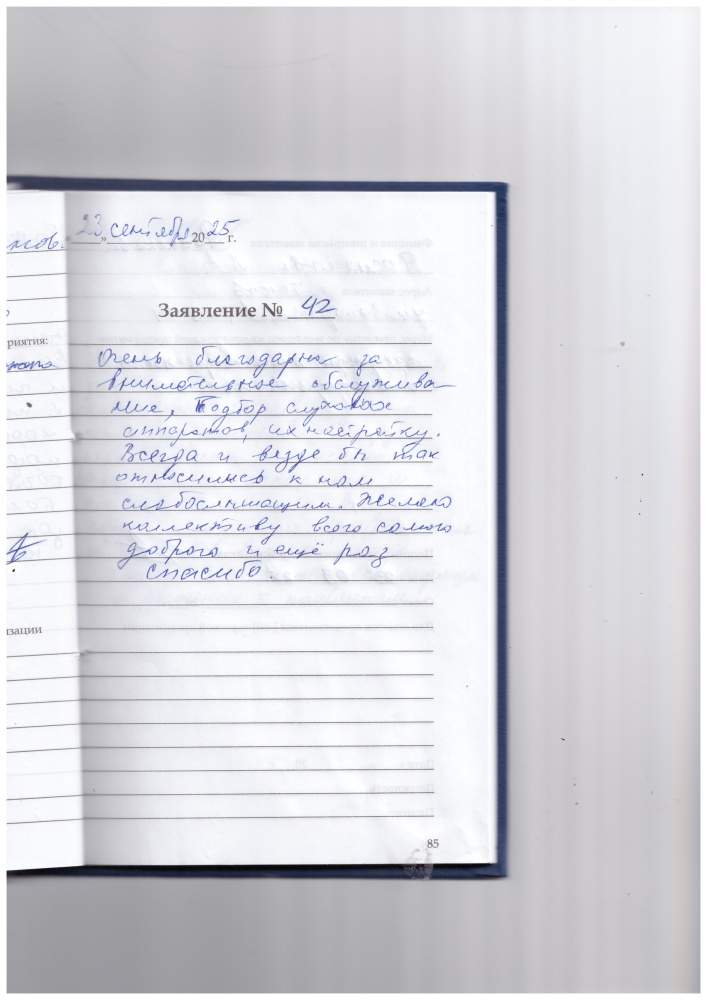 "23" сентября 2025 г.
Заявление № 42
Очень благодарна за
внимательное обслужива-
ние, подбор слуховых
аппаратов, их настройку.
Всегда и везде бы так
относились к нам
слабослышащим. Желаю
коллективу всего самого
доброго и ещё раз
спасибо.
85
риятия:
изации